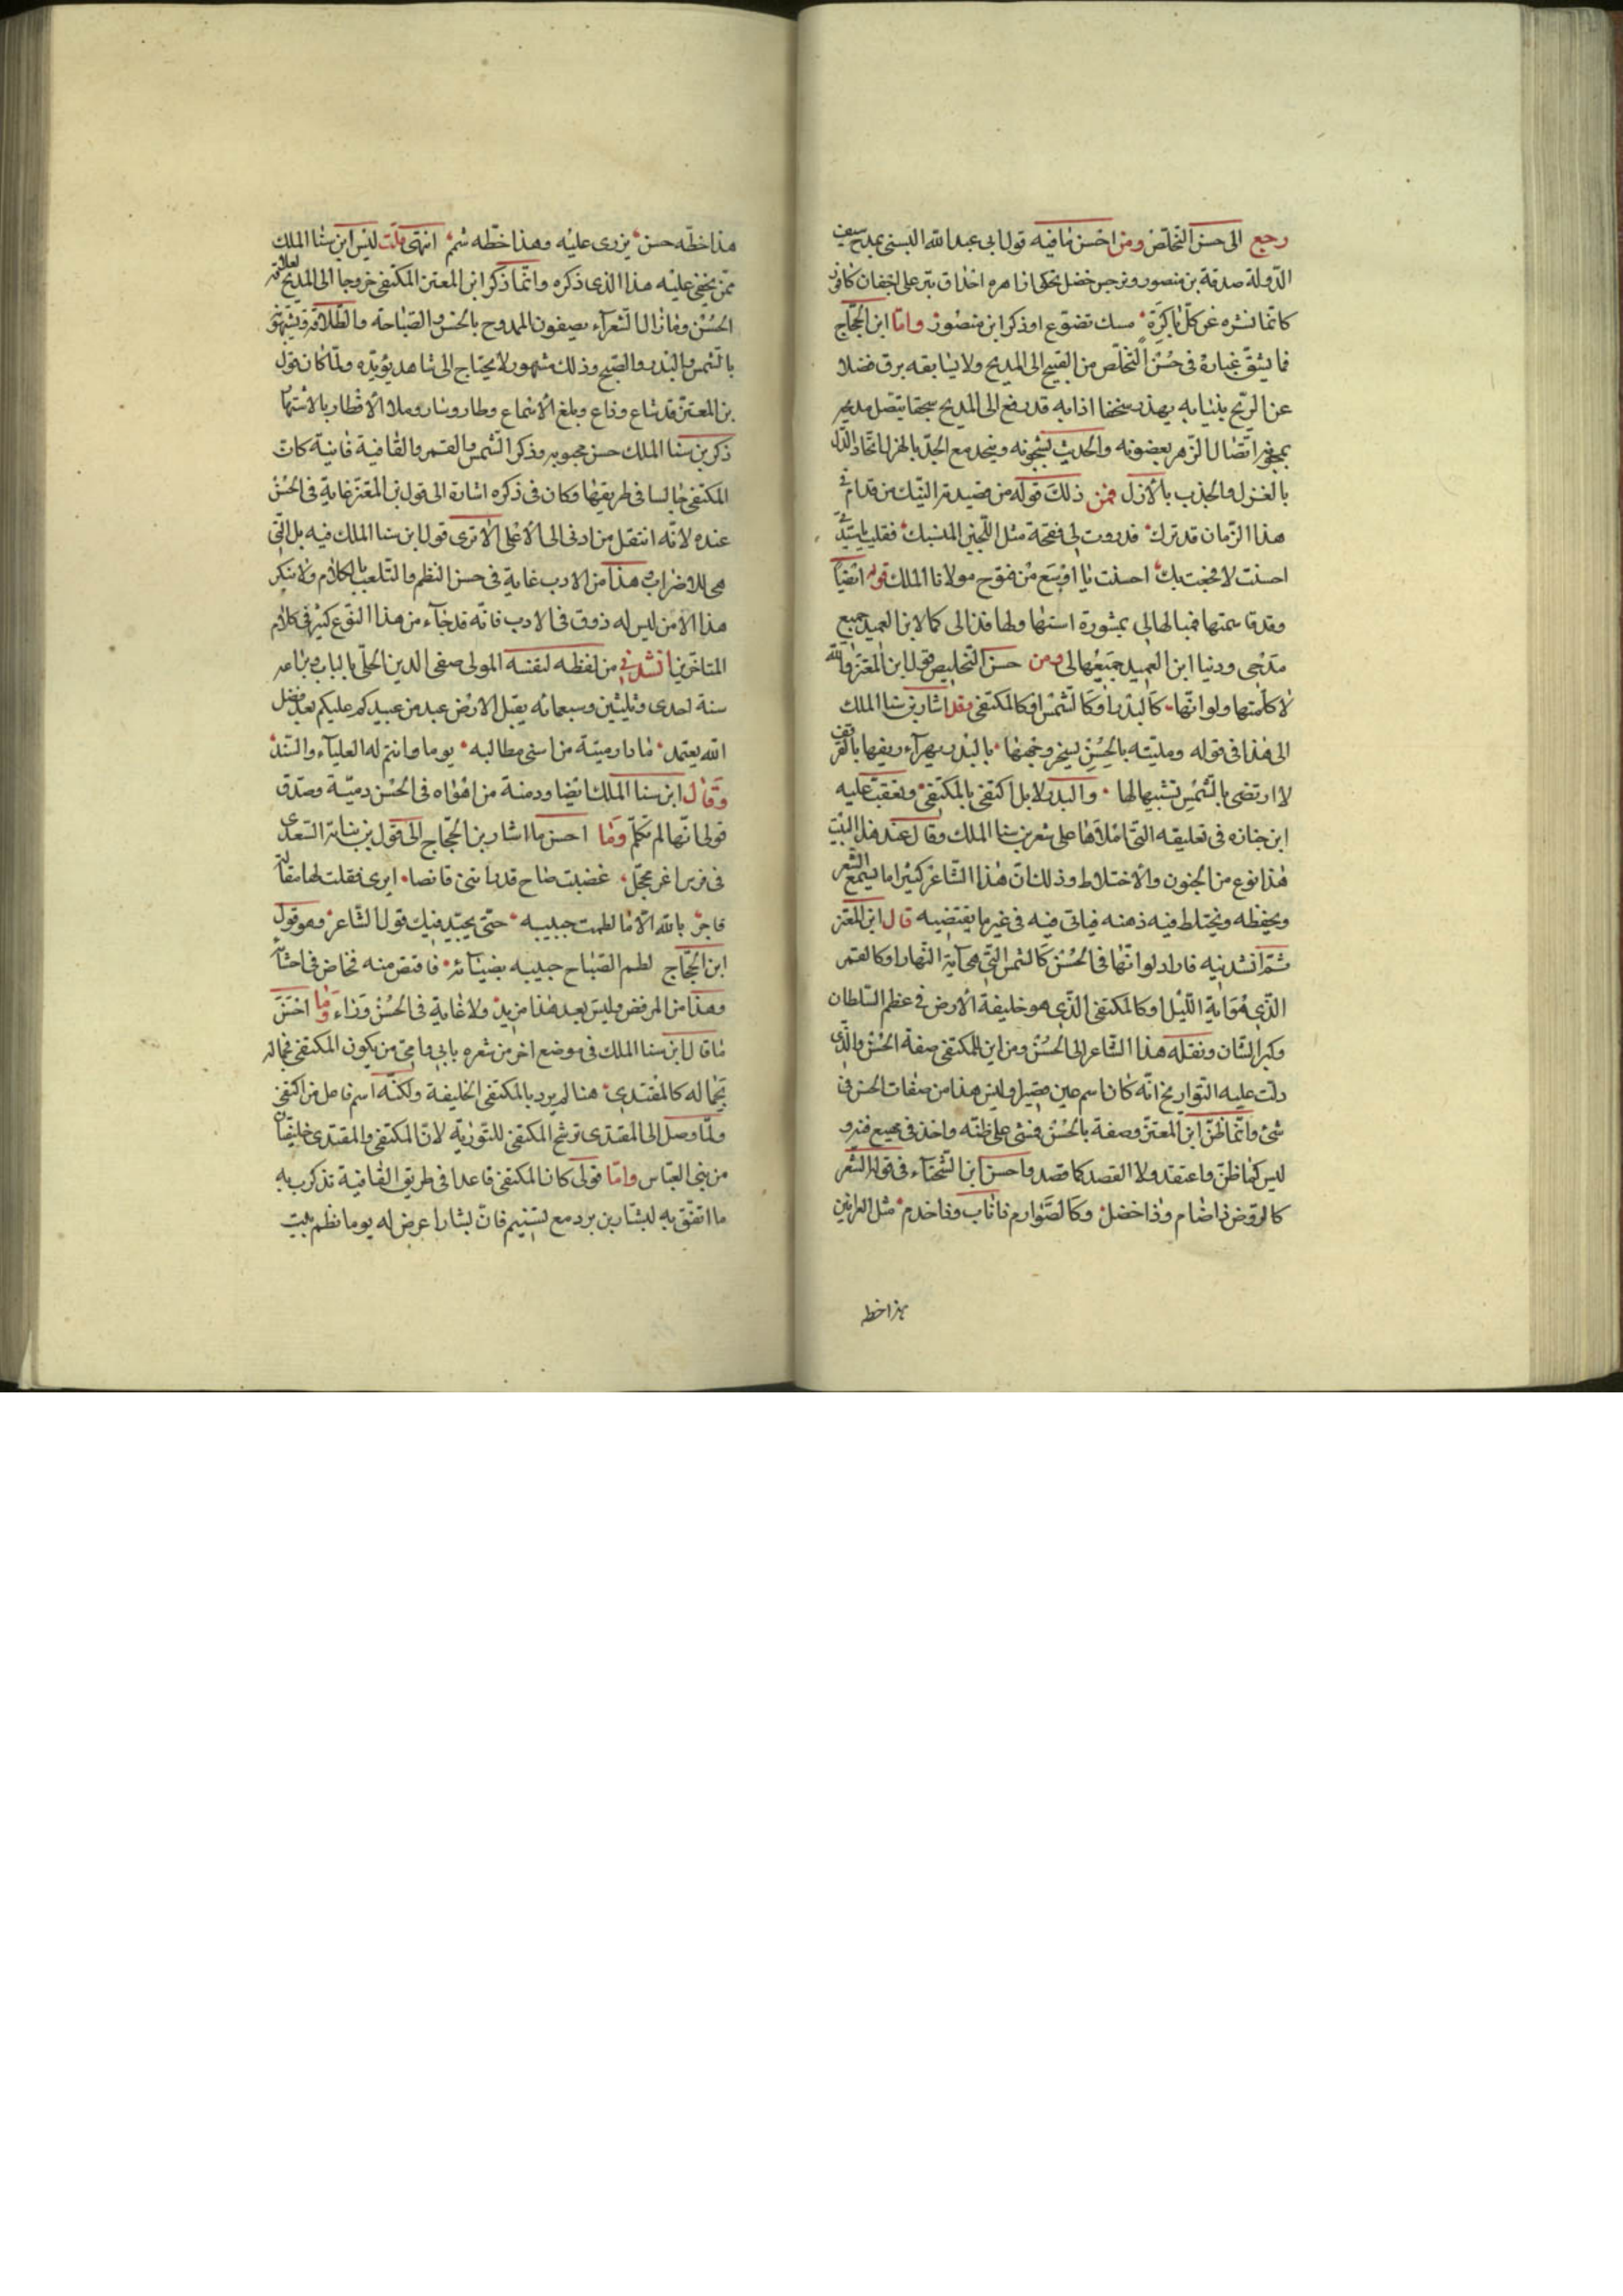 رجع الى حسن التخلص ومن احسن ما فيه قول ابى عبد الله البستى يمدح سيف
الدولة صدقة بن منصور ونرجس خضل يحكى ازاهره احداق تبر على اجفان كافور
كانما نشره عن كل باكرة مسك تضوع او ذكر ابن منصور واما ابن الحجاج
فما يشق غباره فى حسن التخلص من القبيح الى المديح ولا يسابقه برق فضلا
عن الريح بينا به يهذر سخفا اذا به قد رفع الى المديح سجفا يتصل مديحه
بمجونه اتصال الزهر بغصونه والحديث بشجونه ويتحد مع الجد بالهزل اتحاد الدال
بالغزل والجذب بالازل فمن ذلك قوله من قصيدة النيك من قدام فى
هذا الزمان قد ترك فدورت لى فقحة مثل اللجين المنسبك فقلت يا ستى
احسنت لا فجعت بك احسنت يا اوسع من فتوح مولانا الملك قوله ايضا
وقد قاسمتها فمبالها لى بمشورة استها ولها قذالى كما لابن العميد جميع
مدحى ودنيا ابن العميد جميعها لى ومن حسن التخليص قول ابن المعتز والله
لا كلمتها ولو انها كالبدر او كالشمس او كالمكتفى وقد اشار بن سنا الملك
الى هذا فى قوله وملية بالحسن يسخر وجهها بالبدر يهزاء ريقها بالقرقف
لا ارتضى بالشمس تشبيها لها والبدر لا بل اكتفى بالمكتفى وتعقب عليه
ابن جباره فى تعليقه التى املاها على شعر بن سنا الملك وقال عند هذا البيت
هذا نوع من الجنون والاختلاط وذلك ان هذا الشاعر كثيرا ما يسمع الشعر
ويحفظه ويختلط فيه ذهنه فياتى فيه فى غير ما يقتضيه قال ابن المعتز
ثم انشدنيه فاراد لو انها فى الحسن كالشمس التى هى آية النهار او كالقمر
الذى هو آية الليل او كالمكتفى الذى هو خليفة الارض فى عظم السلطان
وكبر الشان ونقله هذا الشاعر الى الحسن ومن اين للمكتفى صفة الحسن والذى
دلت عليه التواريخ انه كان اسمر عين قصيرا وليس هذا من صفات الحسن فى
شئ وانما ظن ابن المعتز وصفه بالحسن فمشى على ظنه واخذ فى جميع فنه و
ليس كما ظن واعتقد ولا القصد كما قصد واحسن ابن الشحناء فى قوله الشعر
كالروض ذا ضام وذا خضل وكالصوارم ذا ناب وذا خذم مثل العرانين
هذا خطه
هذا خطه حسن يزرى عليه وهذا خطه شمم انتهى قلت ليس ابن سنا الملك
ممن يخفى عليه هذا الذى ذكره وانما ذكر ابن المعتز المكتفى خروجا الى المديح لعلاقة
الحسن وما زال الشعرآء يصفون الممدوح بالحسن والصباحة والطلاقة وتشبيهه
بالشمس والبدر والصبح وذلك مشهور لا يحتاج الى شاهد يؤيده ولما كان قول
بن المعتز قد شاع وذاع وبلغ الاسماع وطار وسار وملا الاقطار بالاشتهار
ذكر بن سنا الملك حسن محبوبه وذكر الشمس والقمر والقافية فائية كانت
المكتفى جالسا فى طريقها وكان فى ذكره اشارة الى قول بن المعتز غاية فى الحسن
عنده لانه انتقل من ادنى الى الاعلى الا ترى قول ابن سنا الملك فيه بل التى
هى للاضراب وهذا من الادب غاية فى حسن النظم والتلعب بالكلام ولا ينكر
هذا الا من ليس له ذوق فى الادب فانه قد جآء من هذا النوع كثير فى كلام
المتاخرين انشدنى من لفظه لنفسه المولى صفى الدين الحلى بالباب وبزاعه
سنة احدى وثلثين وسبعمائة يقبل الارض عبد من عبيدكم عليكم بعد فضل
الله يعتمد ما دار مية من اسنى مطالبه يوما وانتم له العلياء والسند
وقال ابن سنا الملك ايضا ودمنة من اهواه فى الحسن دمية وصدق
قولى انها لم تكلم وما احسن ما اشار بن الحجاج الى قول بن نباتة السعدى
فى فرس اغر محجل غضبت صباح قد راتنى قابضا ايرى فقلت لها مقالة
فاجر بالله الا ما لطمت جبينه حتى يحقق فيك قول الشاعر وهو قول
ابن الحجاج لطم الصباح جبينه بضيآئه فاقتص منه فخاض فى احشائه
وهذا من المرقص وليس بعد هذا مزيد ولا غاية فى الحسن وراء وما احسن
ما قال ابن سنا الملك فى موضع اخر من شعره بابى وامى من يكون المكتفى بجماله
بجماله كالمقتدى هنا لم يرد بالمكتفى الخليفة ولكنه اسم فاعل من اكتفى
ولما وصل الى المقتدى ترشح المكتفى للتورية لان المكتفى والمقتدى خليفتان
من بنى العباس واما قولى كان المكتفى قاعدا فى طريق القافية تذكرت به
ما اتفق به لبشار بن برد مع تسنيم فان بشارا عرض له يوما نظم بيت